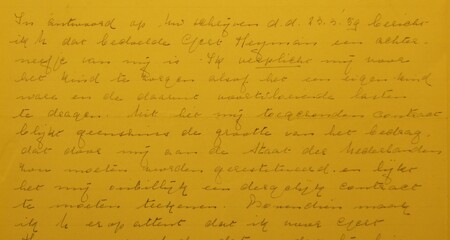 In antwoord op Uw schrijven d.d. 23.3.'39 bericht
ik U dat bedoelde Gert Heymans een achter-
neefje van mij is. Ik verplicht mij voor
het kind te zorgen alsof het een eigen kind
ware en de daaruit voortvloeiende lasten
te dragen. Uit het mij toegezonden contract
blijkt geenszins de grootte van het bedrag,
dat door mij aan de Staat der Nederlanden
zou moeten worden gerestitueerd, en lijkt
het mij onbillijk een dergelijk contract
te moeten teekenen. Bovendien maak
ik U er op attent dat ik voor Gert